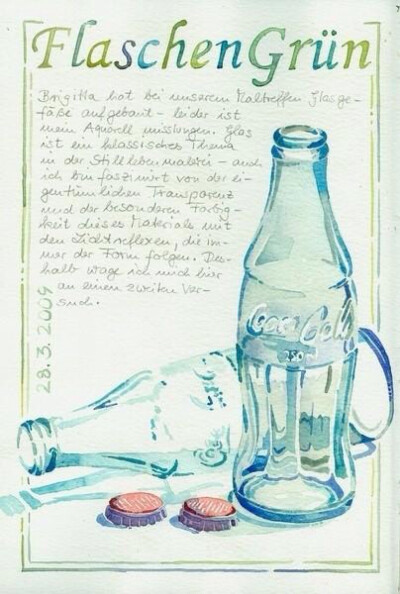 FlaschenGrün
Brigitta hat bei unserem Maltreffen Glasge-
fäße aufgebaut – leider ist
mein Aquarell misslungen. Glas
ist ein klassisches Thema
in der Stilllebenmalerei – auch
ich bin fasziniert von der ei-
gentümlichen Transparenz
und der besonderen Farbig-
keit dieses Materials mit
den Lichtreflexen, die im-
mer der Form folgen. Des-
halb wage ich mich hier
an einen zweiten Ver-
such.
28.3.2009
Coca Cola
250